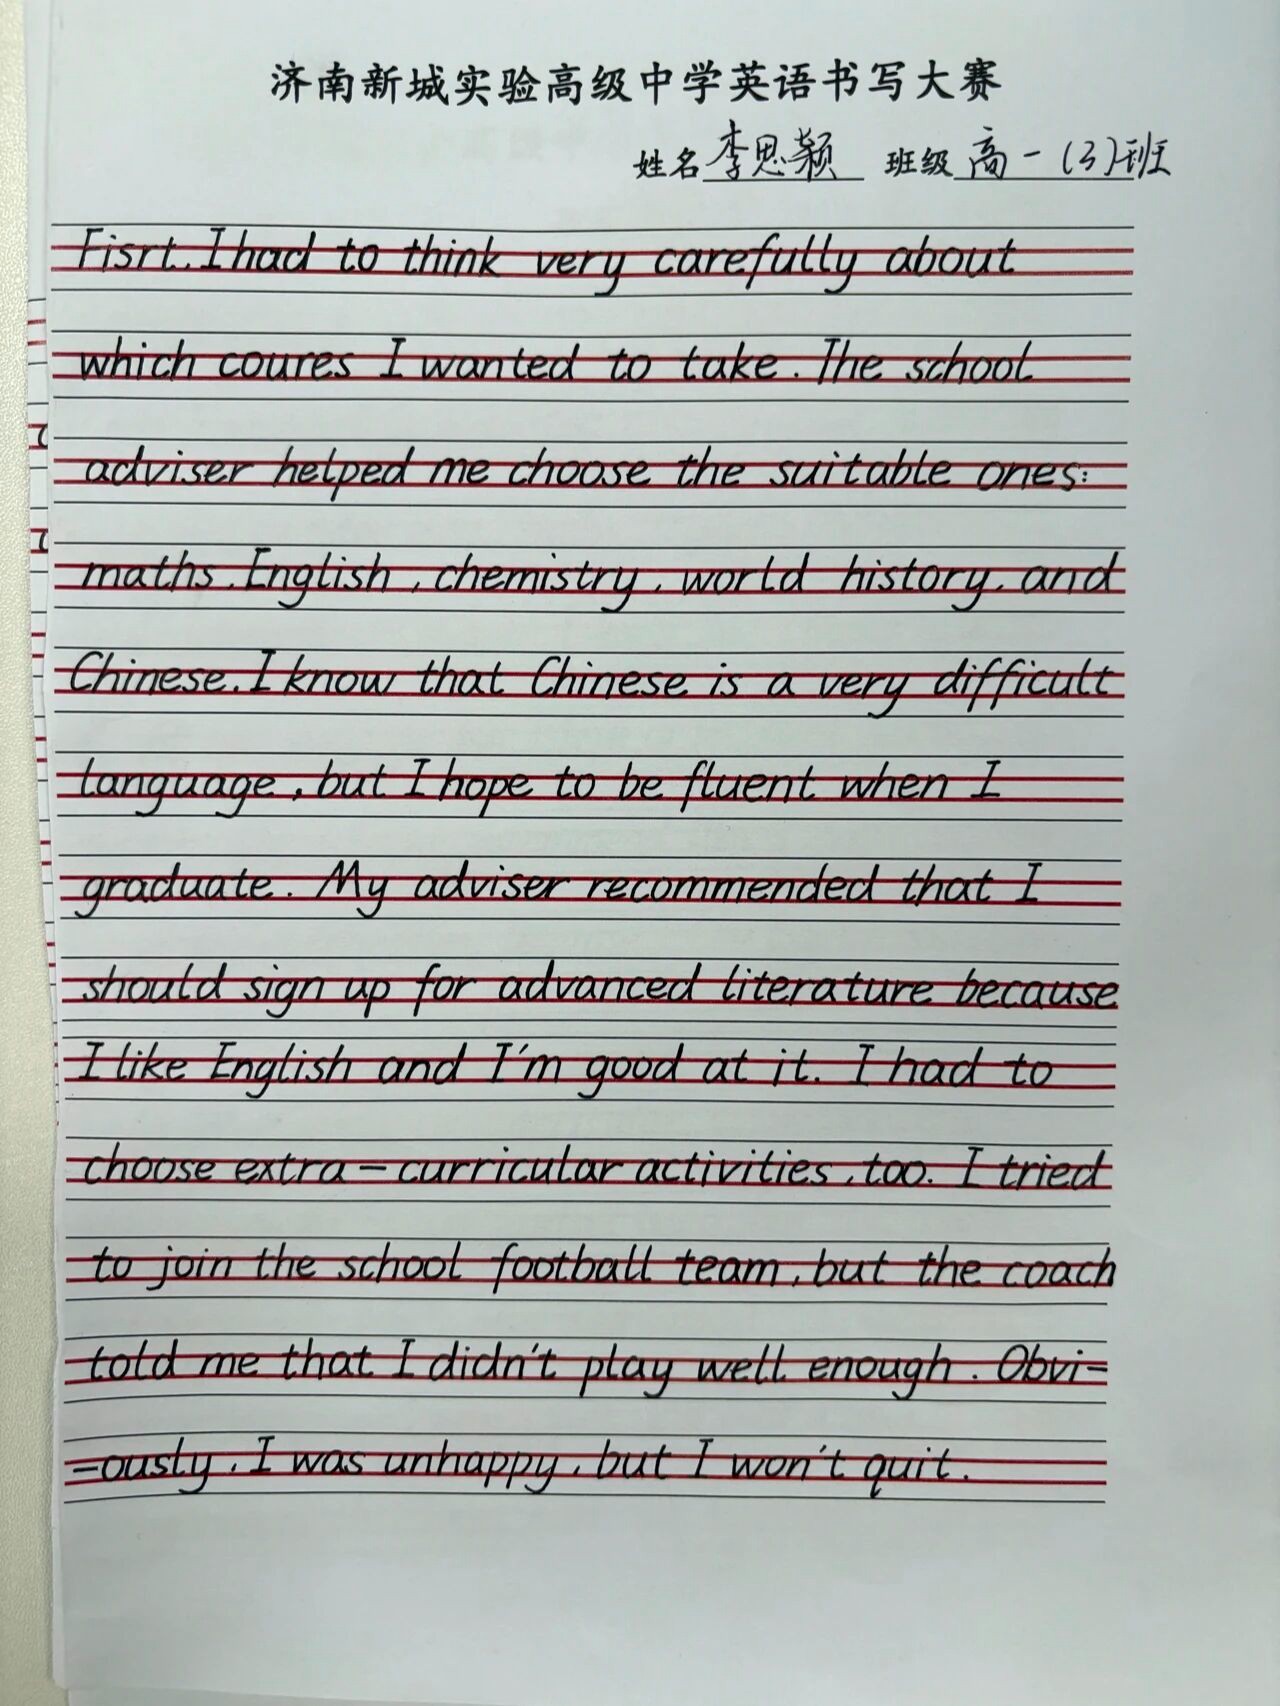 济南新城实验高级中学英语书写大赛
姓名 李思颖 班级 高一(3)班
Fisrt, I had to think very carefully about
which coures I wanted to take. The school
adviser helped me choose the suitable ones:
maths, English, chemistry, world history, and
Chinese. I know that Chinese is a very difficult
language, but I hope to be fluent when I
graduate. My adviser recommended that I
should sign up for advanced literature because
I like English and I'm good at it. I had to
choose extra-curricular activities, too. I tried
to join the school football team, but the coach
told me that I didn't play well enough. Obvi-
-ously, I was unhappy, but I won't quit.